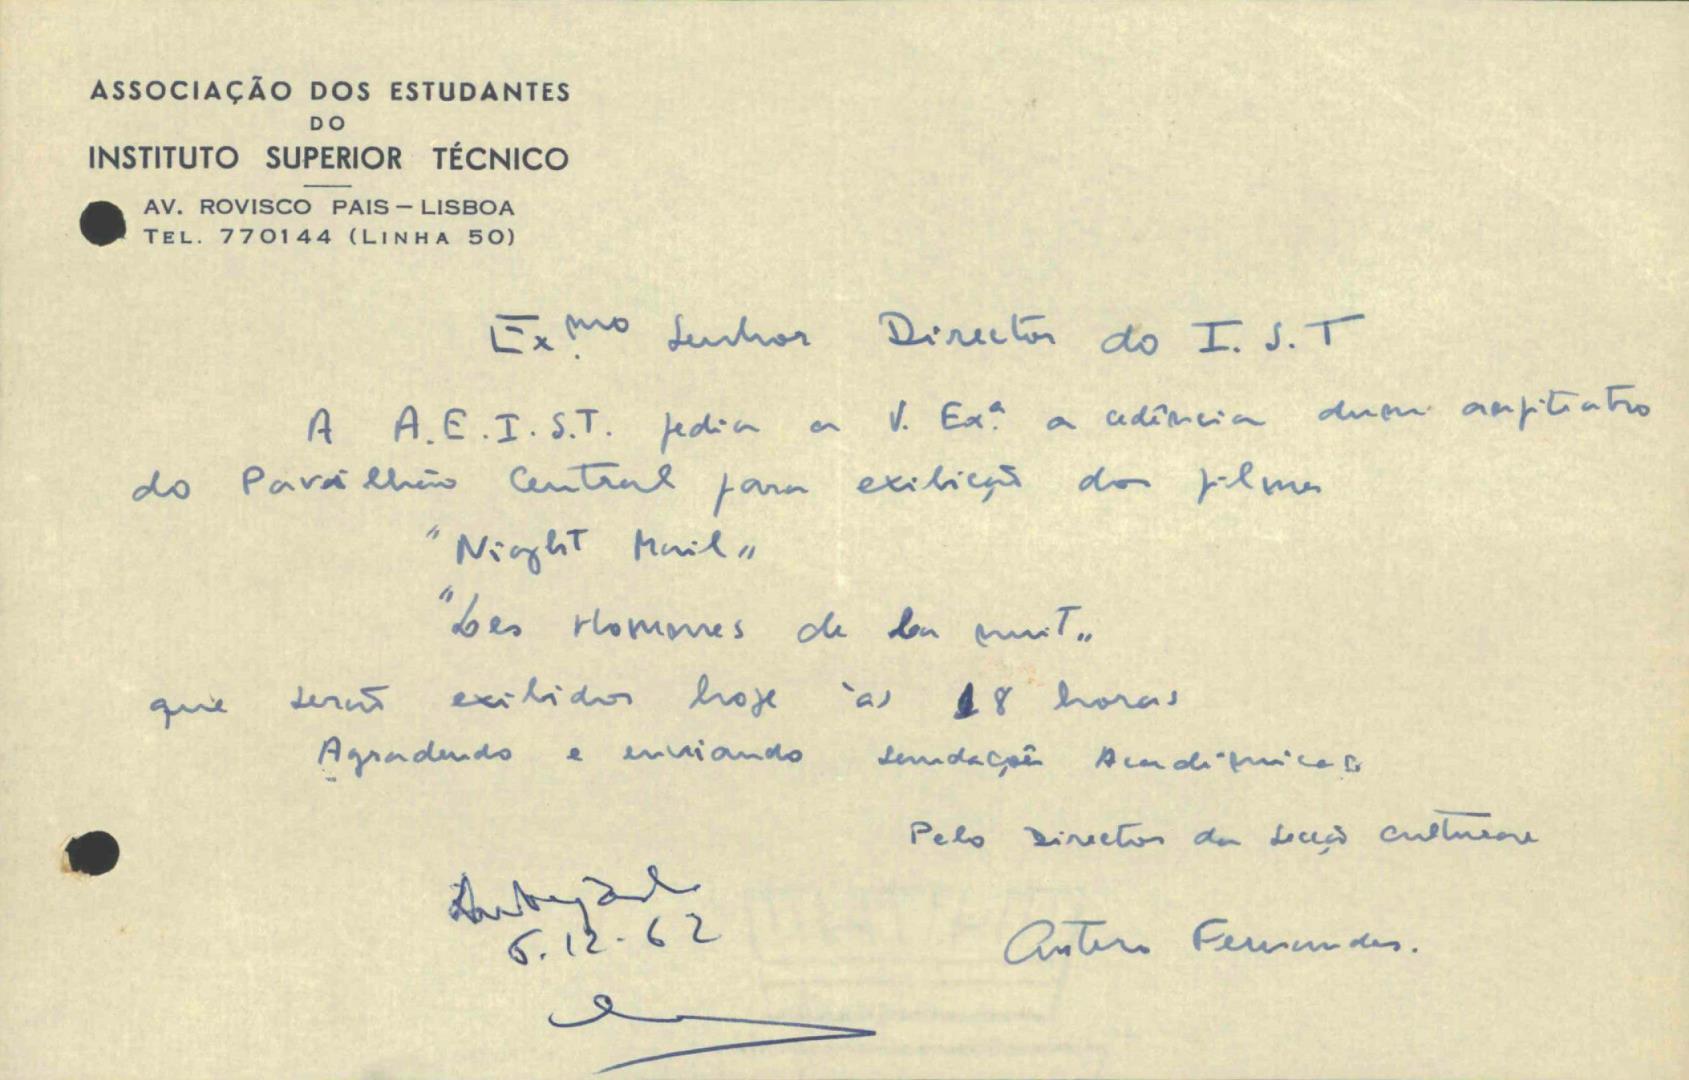 ASSOCIAÇÃO DOS ESTUDANTES
DO
INSTITUTO SUPERIOR TÉCNICO
AV. ROVISCO PAIS – LISBOA
TEL. 770144 (LINHA 50)
Ex.mo Senhor Director do I. S. T
A A.E.I.S.T. pedia a V. Ex.ª a cedência dum anfiteatro
do Pavilhão Central para exibição dos filmes
"Night Mail"
"Les Hommes de la nuit"
que serão exibidos hoje às 18 horas
Agradendo e enviando saudações Académicas
Pelo Director da Secção cultural
6.12.62
Antero Fernandes.